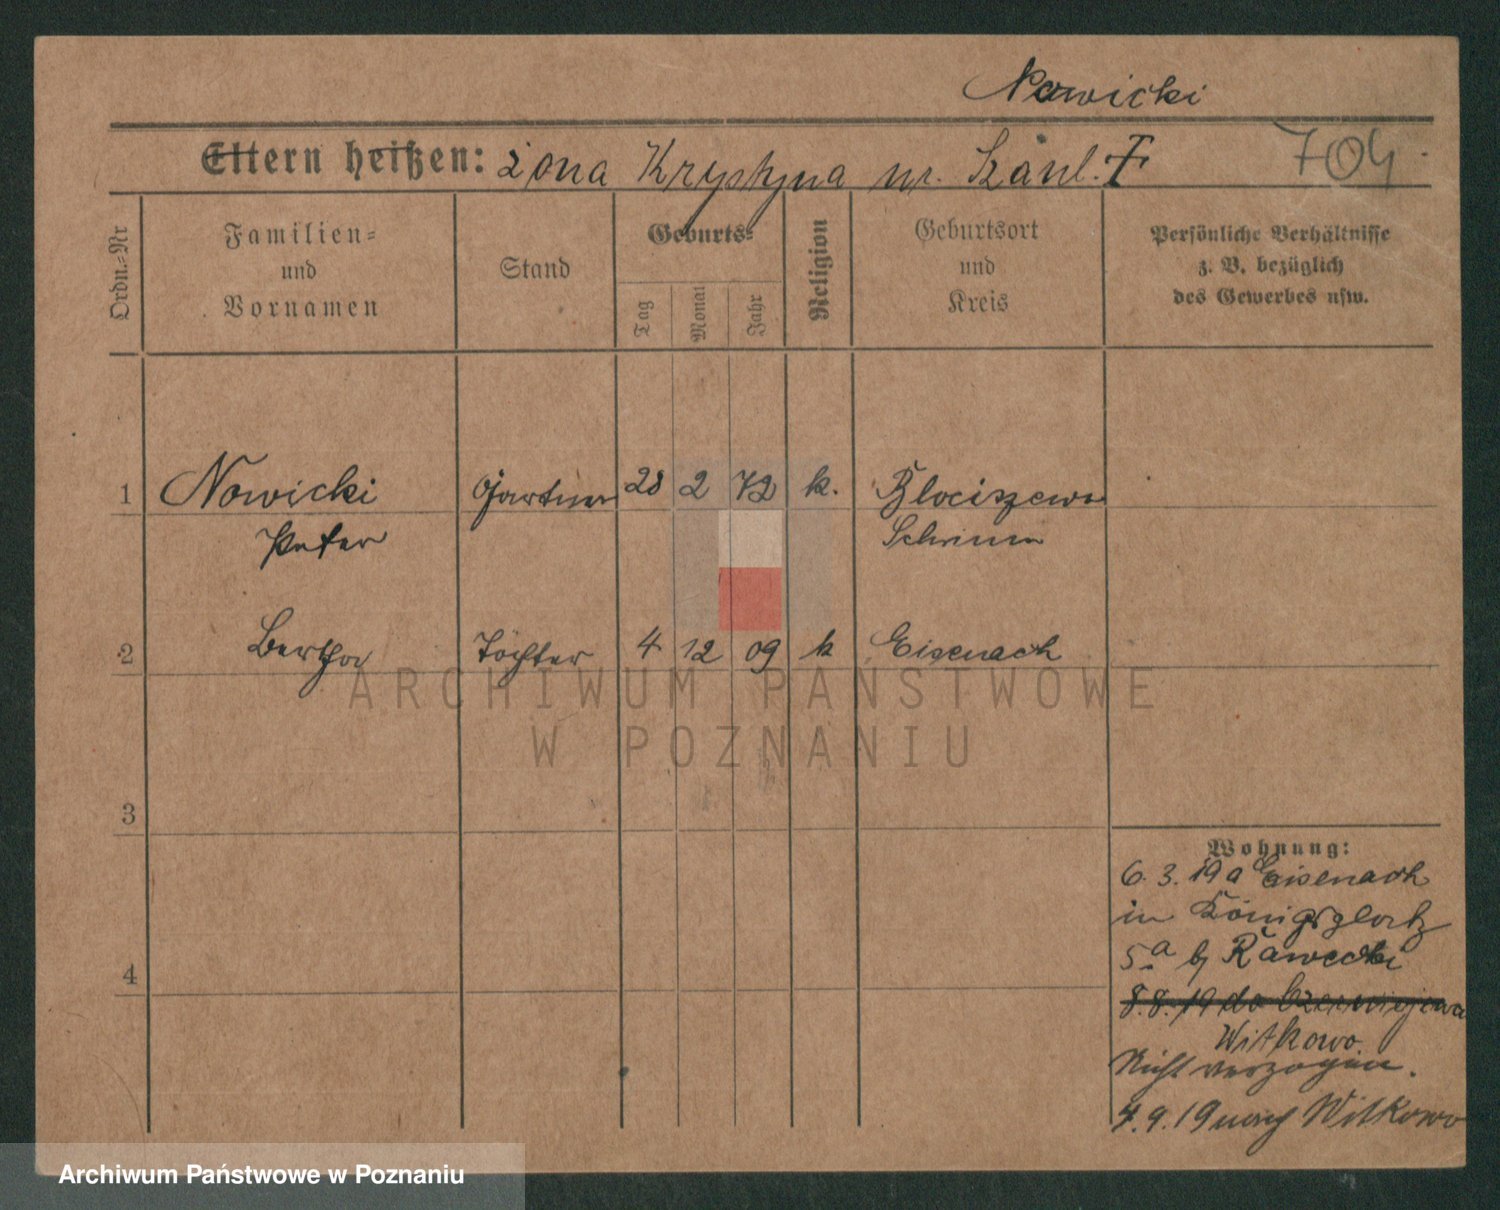 Nowicki
Eltern heißen: żona Krystyna ur. 704
Ordn.-Nr
Familien-
und
Vornamen
Stand
Geburts-
Tag
Monat
Jahr
Religion
Geburtsort
und
Kreis
Persönliche Verhältnisse
z. B. bezüglich
des Gewerbes usw.
1 Nowicki Gärtner 28 2 72 k. Blociszewo
Peter Schrimm
2 Bertha Tochter 4 12 09 k Eisenach
ARCHIWUM PAŃSTWOWE
W POZNANIU
3
4
Wohnung:
6. 3. 19 a Eisenach
in Königsplatz
5a b/ Rawecki
8.8.19 do Czerniejewa
Witkowo
Nicht verzogen.
4. 9. 19 nach Witkowo
Archiwum Państwowe w Poznaniu